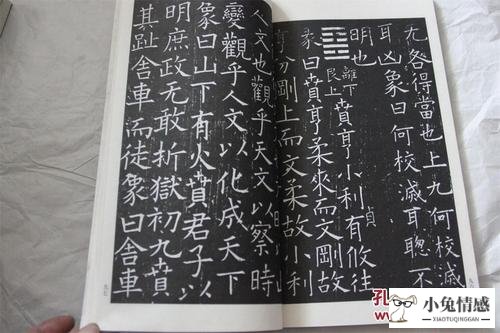 无咎得當也上九何校滅
耳凶象曰何校滅耳聰不
明也
離下
艮上
賁亨小利有攸往
貞
彖曰賁亨柔來而文剛故
亨分剛上而文柔故小利
人文也觀乎天文以察時
變觀乎人文以化成天下
象曰山下有火賁君子以
明庶政无敢折獄初九賁
其趾舍車而徒象曰舍車
九七
孔
小兔情感
XIAOTUQINGGAN